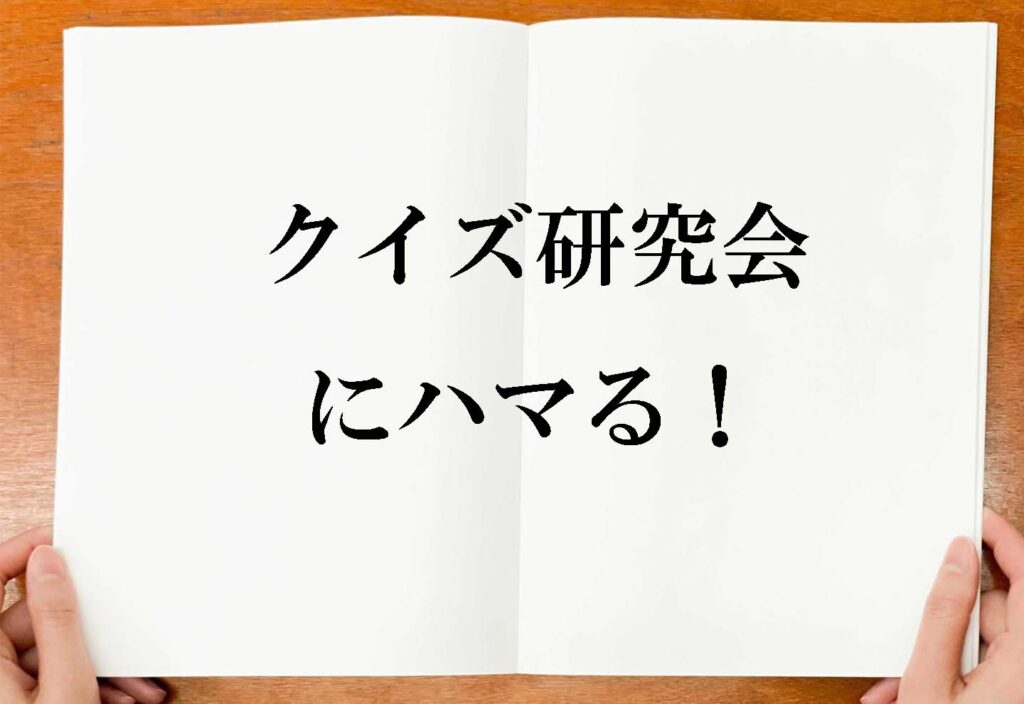 クイズ研究会
にハマる！